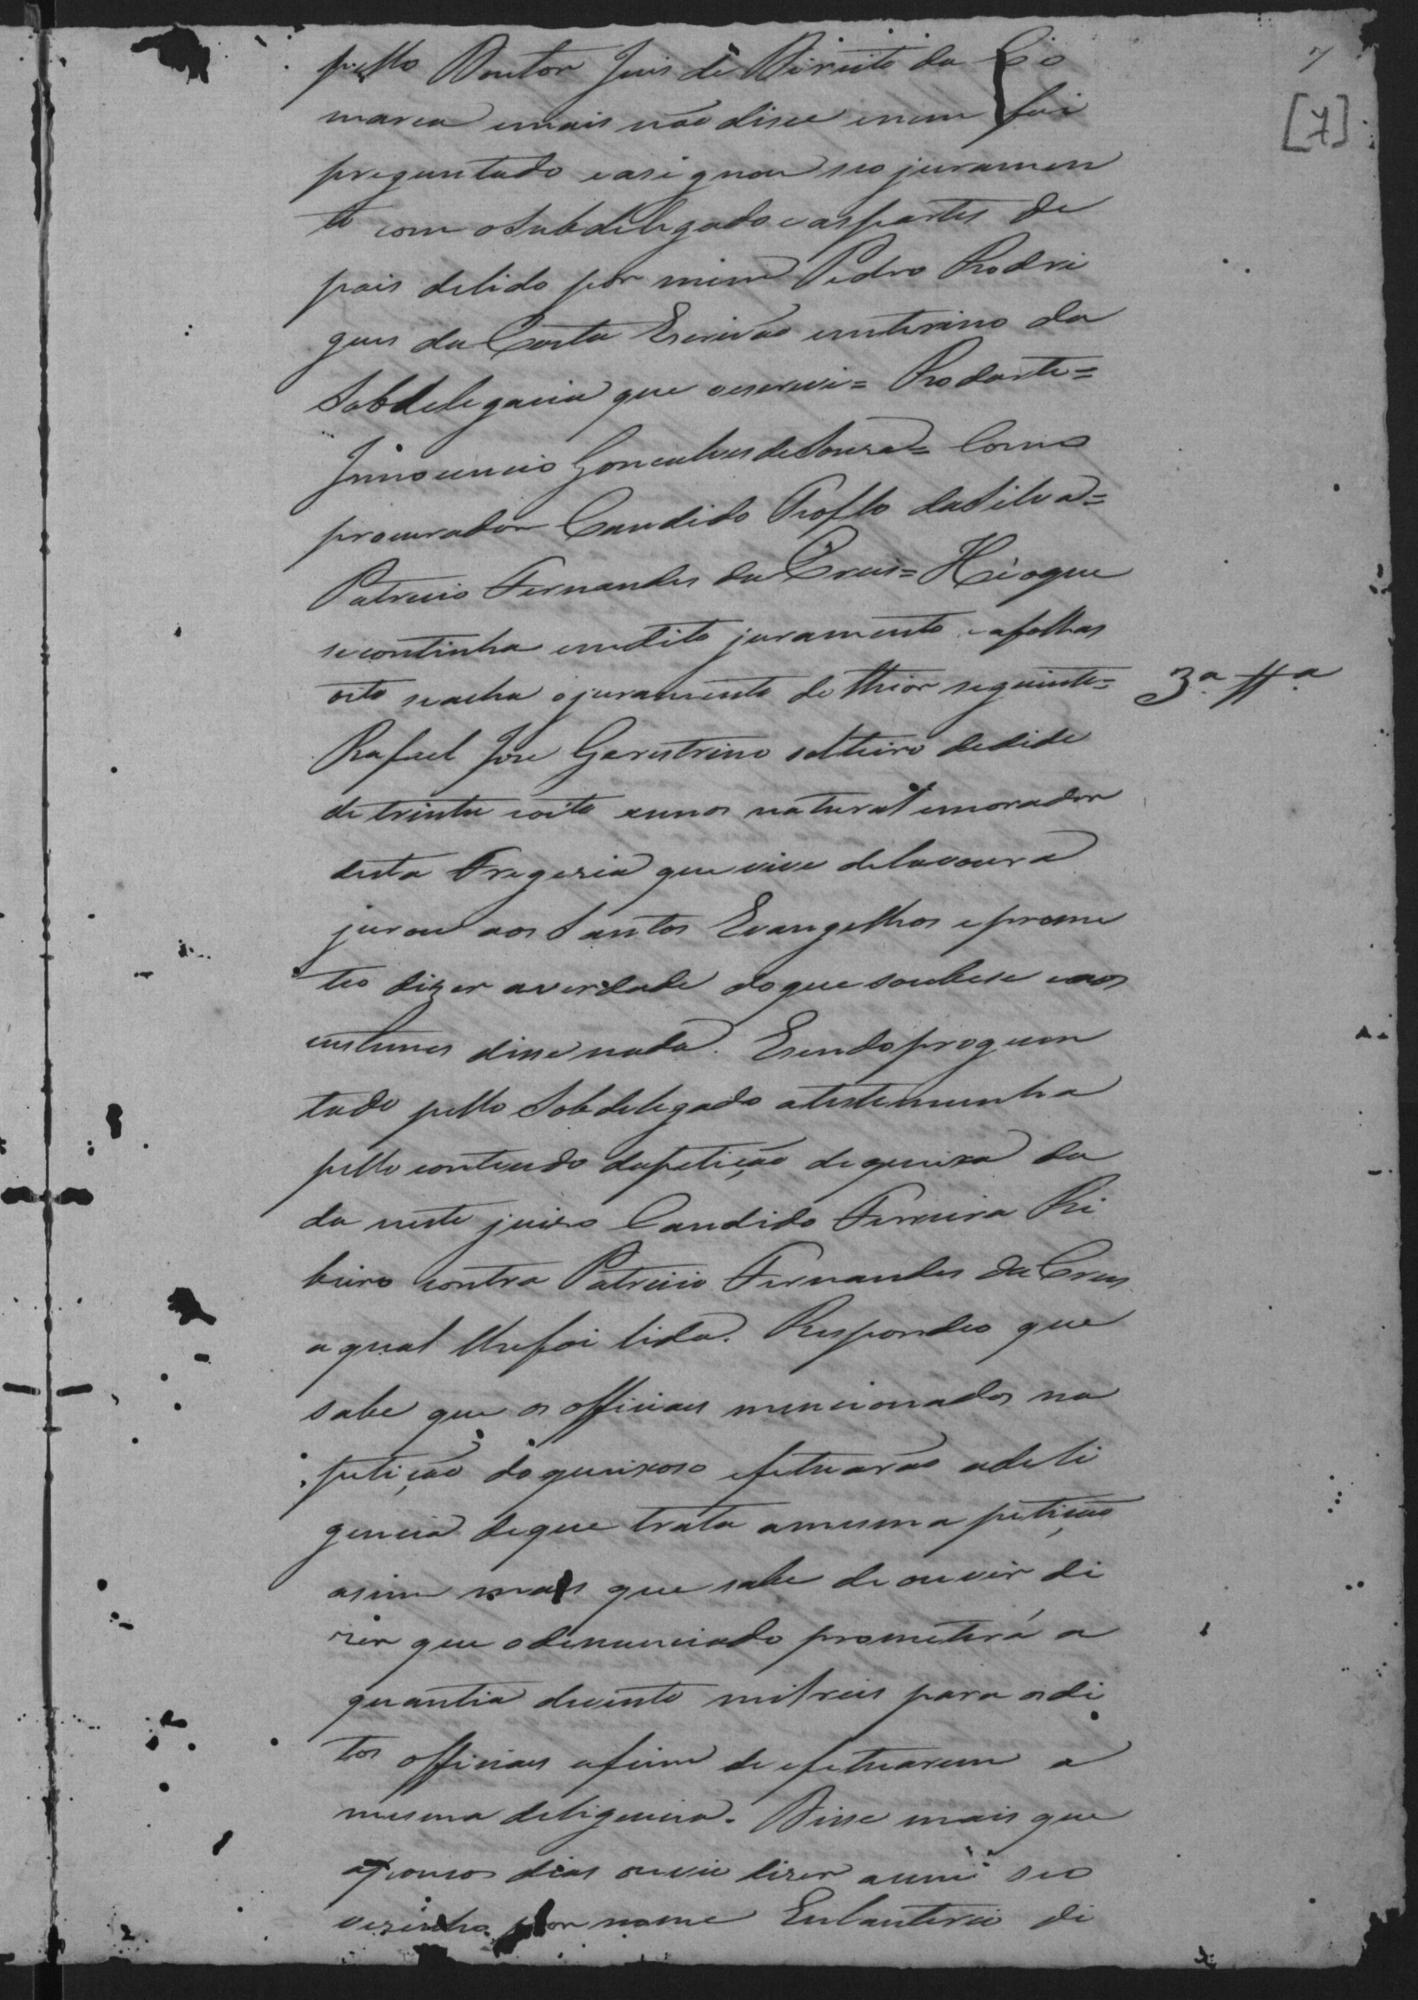 7
[7]
pello Doutor Juis de Direito da Co
marca emais não disce inem foi
preguntado easignou seo juramen
to com oSubdelegado easpartes de
pois delido por mim Pedro Rodri
gues da Costa Escrivão emterino da
Sobdelegacia que oescrevi = Rodarte =
Innocencio Goncalves deSouza = Como
procurador Candido Profto daSilva =
Patricio Fernandes da Crus = He oque
secontinha emdito juramento eafolhas
oito seacha ojuramento do thior seguinte =
3.ª tt.ª
Rafael Jose solteiro dedide
de trinta eoito annos natural emorador
desta Fregesia que vive delavoura
jurou aos Santos Evangelhos eprome
teo dizer averdade doque soubese eaos
custumes disse nada. Esendo pregun
tado pello Sobdelegado atestemunha
pello conteudo dapetição dequeixa da
da neste juizo Candido Ferreira Ri
beiro contra Patricio Fernandes da Crus
aqual lhefoi lida. Respondeo que
sabe que os officiaes mencionados na
petição doqueixoso efetuarão adeli
gencia deque trata amesma petição
asim mais que sabe de ouvir di
zer que odenunciado prometerá a
quantia decento milreis para osdi
tos officiaes afim de efetuarem a
mesma deligencia. Disse mais que
apoucos dias ouvio dizer aum seo
vezinho por nome de